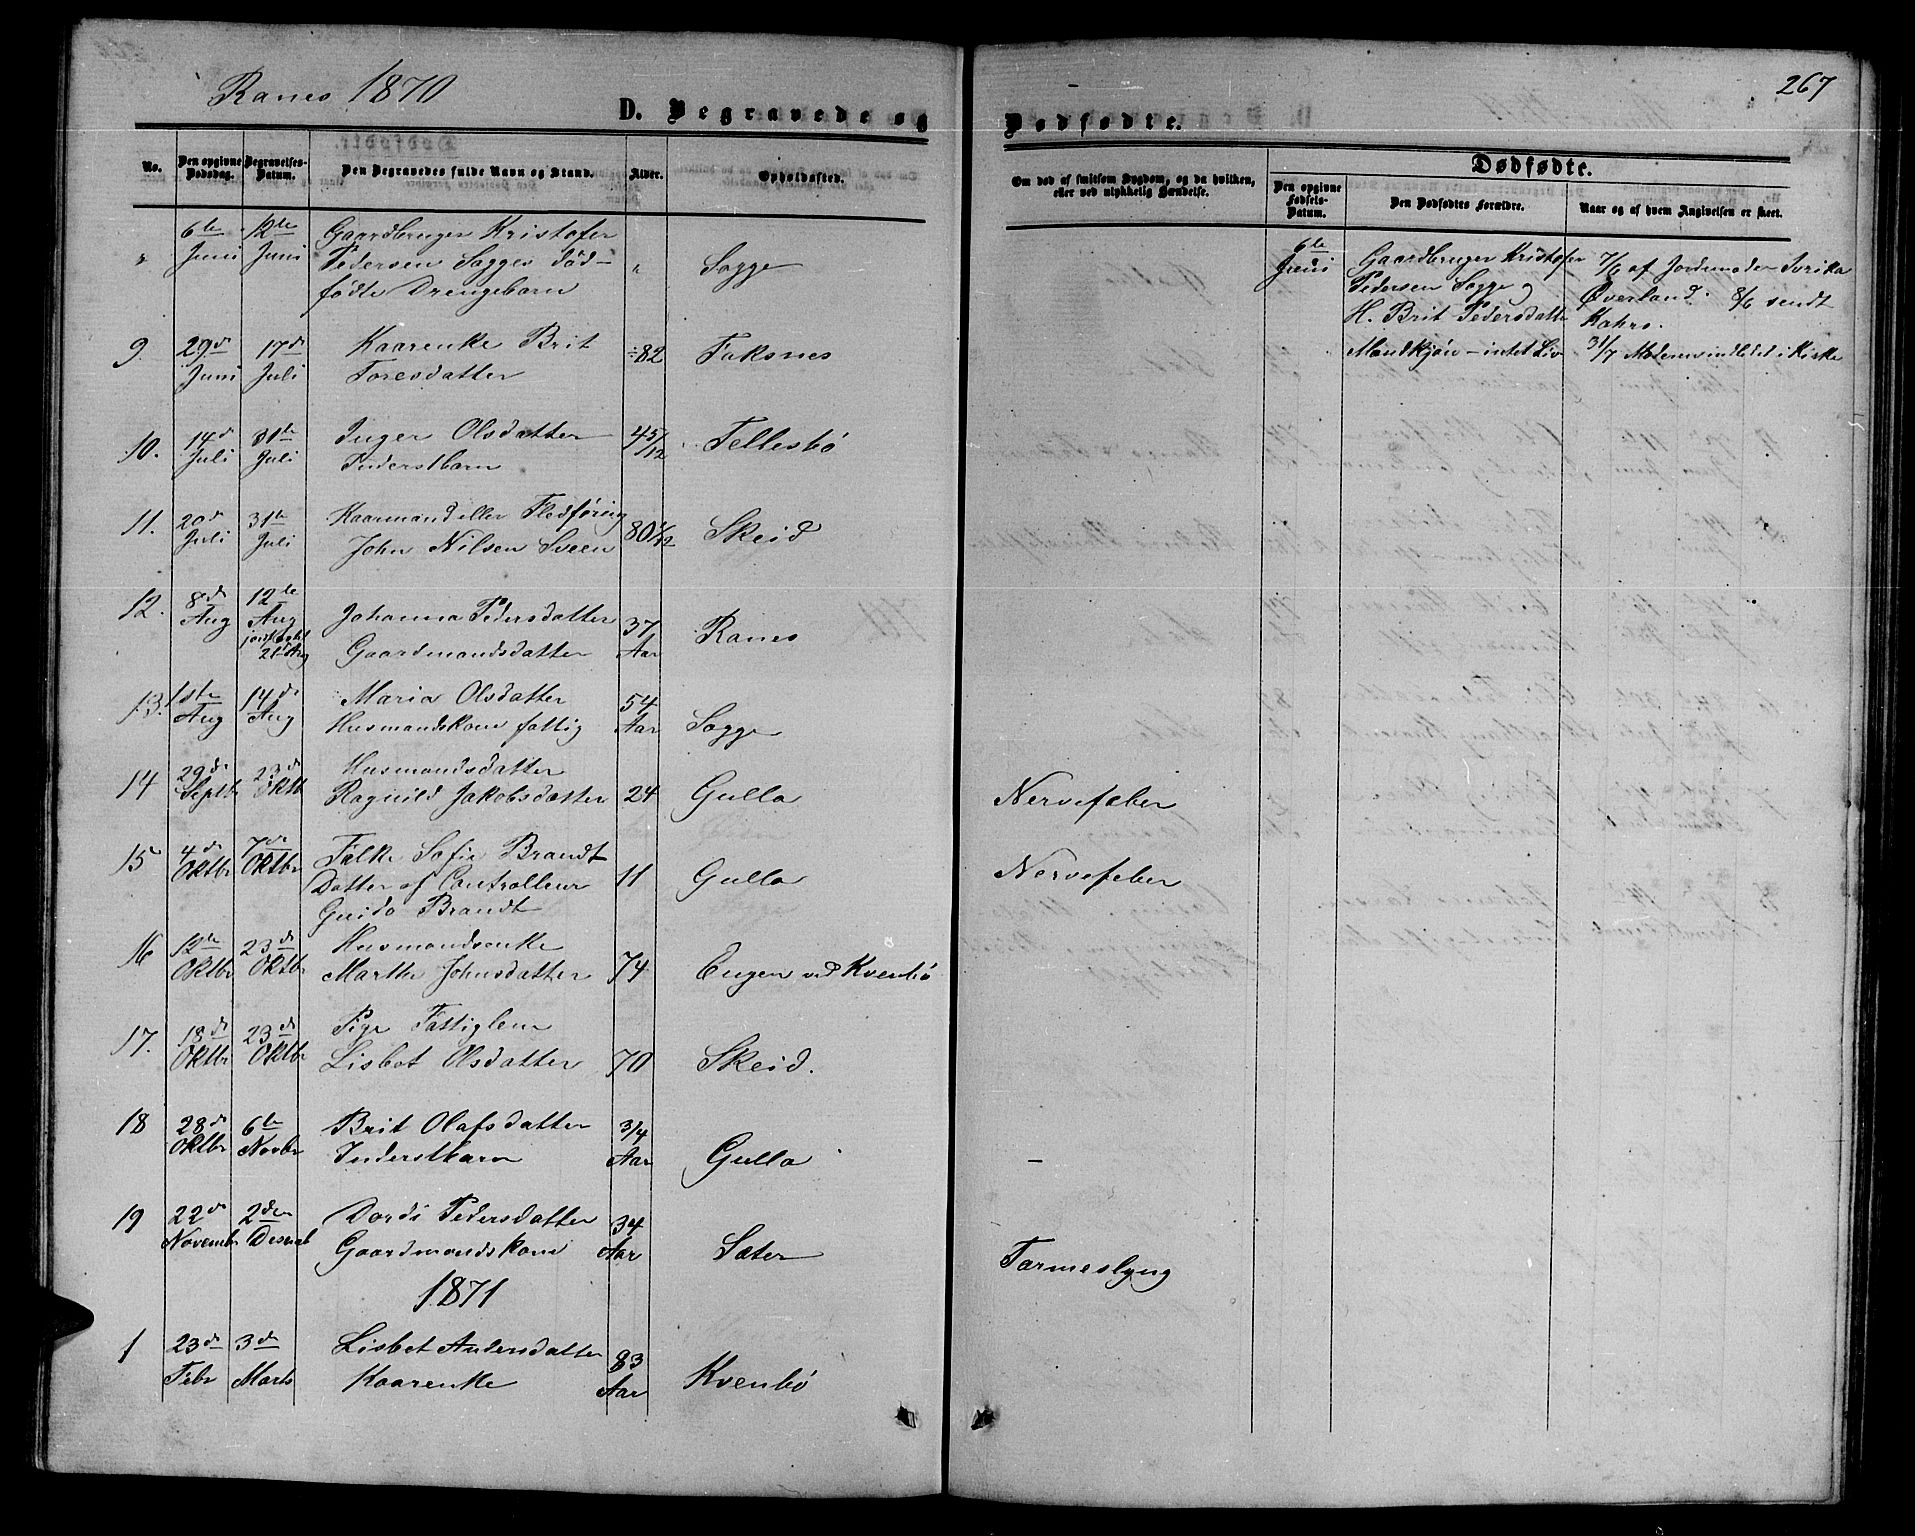 Ranes 1870
267
D. Begravede og
Dødfødte.
No.
Den opgivne Dødsdag.
Begravelses-Datum.
Den Begravedes fulde Navn og Stand.
Alder.
Opholdssted.
Om død af smitsom Sygdom, og da hvilken,
eller ved ulykkelig Hændelse.
Dødfødte.
Den opgivne Fødsels-Datum.
Den Dødfødtes Forældre.
Naar og af hvem Angivelsen er skeet.
" 6te Juni 12te Juni
Gaardbruger Kristofer
Pedersen Sogges død-
fødte Drengebarn
" Sogge
6te Juni
Gaardbruger Kristofer
Pedersen Sogge og
H. Brit Pedersdatter
Mandkjøn - intet Liv
7/6 af Jordemoder
Øverland. 8/6 sendt
31/7 Moderen indledet i Kirke
9. 29de Juni 17de Juli
Kaarenke Brit
Toresdatter
82 Foksnes
10. 14de Juli 31te Juli
Inger Olsdatter
Inderstbarn
4 5/12 Tellesbø
11. 20de Juli 31te Juli
Kaarmand eller Fledføring
John Nilsen Sveen
80 Skeid
12. 8de Aug 12te Aug
jordkastet 21de Aug
Johanna Pedersdatter
Gaardmandsdatter
37 Aar Ranes
13. 1ste Aug 14de Aug
Maria Olsdatter
Husmandskone fattig
54 Aar Sogge
14 29de Septbr 23de Oktb
Husmandsdatter
Ragnild Jakobsdatter
24 Gulla
Nervefeber
15 4de Oktbr 7de Oktbr
Falke Sofie Brandt
Datter af Controlleur
Guido Brandt
11 Gulla
Nervefeber
16 12te Oktbr 23de Oktbr
Husmandsenke
Marthe Johnsdatter
74 Engen ved Kvenbø
17. 18de Oktbr 23de Oktbr
Pige Fattiglem
Lisbet Olsdatter
70 Skeid.
18 28de Oktbr 6te Novbr
Brit Olafsdatter
Inderstbarn
3/4 Aar Gulla
-
19 22de Novembr 2den Desemb
Dordi Pedersdatter
Gaardmandskone
34 Aar Sæter
Tarmeslyng
1871
1 23de Febr 3de Marts
Lisbet Andersdatter
Kaarenke
83 Aar Kvenbø